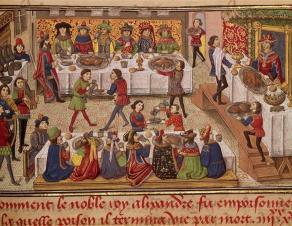 omment le noble roy alixandre fu empoisonne
la quelle poison il termina vie par mort